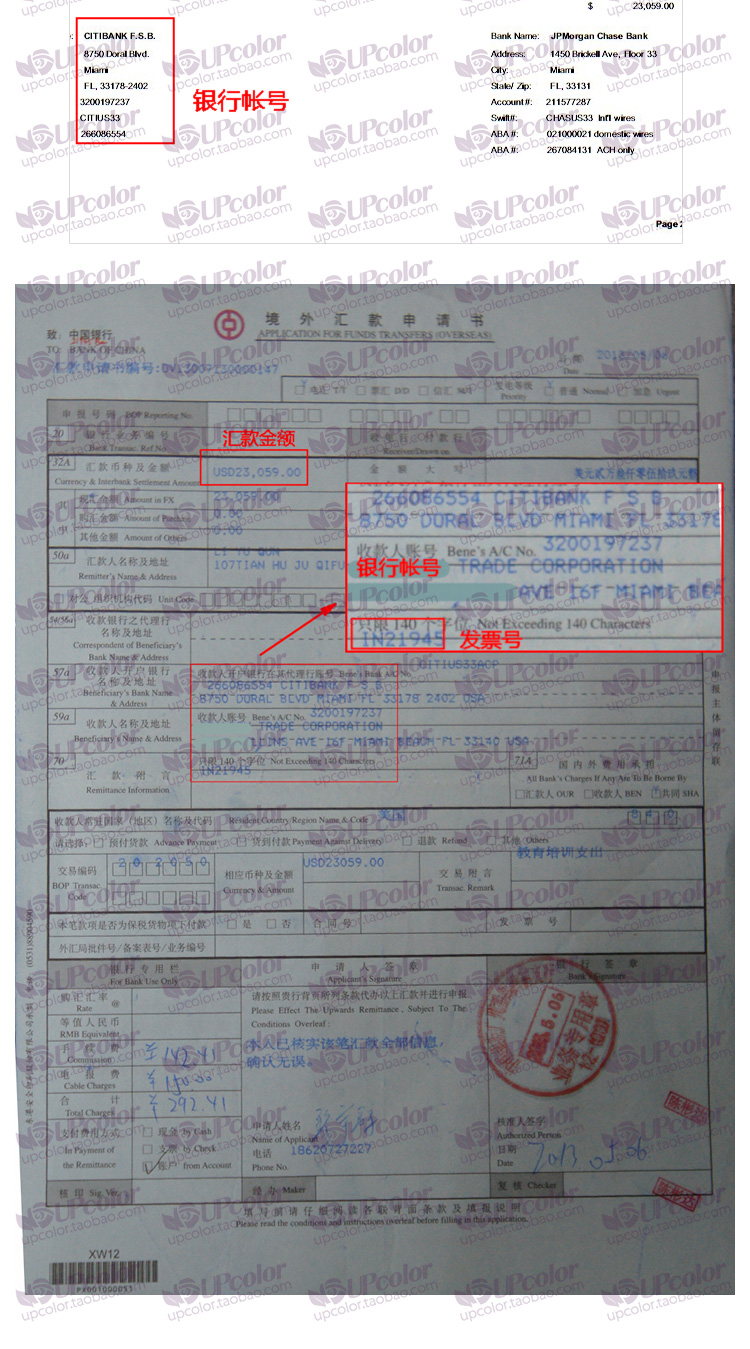 $ 23,059.00
CITIBANK F.S.B.
8750 Doral Blvd.
Miami
FL, 33178-2402
3200197237
CITIUS33
266086554
银行帐号
Bank Name: JPMorgan Chase Bank
Address: 1450 Brickell Ave, Floor 33
City: Miami
State/ Zip: FL, 33131
Account#: 211577287
Swift#: CHASUS33 Int'l wires
ABA #: 021000021 domestic wires
ABA #: 267084131 ACH only
Page
UPcolor
upcolor.taobao.com
境外汇款申请书
APPLICATION FOR FUNDS TRANSFERS (OVERSEAS)
致：中国银行
TO: BANK OF CHINA
汇款申请书编号:
Date
电汇 T/T 票汇 D/D 信汇 M/T
发电等级
Priority
普通 Normal 加急 Urgent
申报号码 BOP Reporting No.
20 银行业务编号
Bank Transac. Ref. No.
收电行/付款行
Receiver/Drawn on
汇款金额
32A 汇款币种及金额
Currency & Interbank Settlement Amount
USD23,059.00
金额大写
美元贰万叁仟零伍拾玖元整
现汇金额 Amount in FX
23,059.00
购汇金额 Amount of Purchase
0.00
其他金额 Amount of Others
0.00
50a 汇款人名称及地址
Remitter's Name & Address
LI YU QUN
107TIAN HU JU QIFU
对公 组织机构代码 Unit Code
266086554 CITIBANK F S B
8750 DORAL BLVD MIAMI FL 33178
收款人账号 Bene's A/C No. 3200197237
银行帐号
TRADE CORPORATION
AVE 16F MIAMI BEA
只限 140 个字位 Not Exceeding 140 Characters
IN21945 发票号
54/56a 收款银行之代理行
名称及地址
Correspondent of Beneficiary's
Bank Name & Address
57a 收款人开户银行
名称及地址
Beneficiary's Bank Name
& Address
收款人开户银行在其代理行账号 Bene's Bank A/C No.
CITIUS33ACP
266086554 CITIBANK F S B
8750 DORAL BLVD MIAMI FL 33178 2402 USA
59a 收款人名称及地址
Beneficiary's Name & Address
收款人账号 Bene's A/C No. 3200197237
TRADE CORPORATION
LLINS AVE 16F MIAMI BEACH FL 33140 USA
70 汇款附言
Remittance Information
只限 140 个字位 Not Exceeding 140 Characters
IN21945
71A 国内外费用承担
All Bank's Charges If Any Are To Be Borne By
汇款人 OUR 收款人 BEN 共同 SHA
申报主体留存联
收款人常驻国家（地区）名称及代码 Resident Country/Region Name & Code 美国
840
请选择： 预付货款 Advance Payment 货到付款 Payment Against Delivery 退款 Refund 其他 Others
交易编码
BOP Transac.
Code
相应币种及金额
Currency & Amount
USD23059.00
交易附言
Transac. Remark
教育培训支出
本笔款项是否为保税货物项下付款 是 否 合同号 发票号
外汇局批件号/备案表号/业务编号
银行专用栏
For Bank Use Only
申请人签章
Applicant's Signature
银行签章
Bank's Signature
购汇汇率
Rate @
等值人民币
RMB Equivalent
手续费
Commission
￥142.41
电报费
Cable Charges
￥150.00
合计
Total Charges
￥292.41
请按照贵行背页所列条款代办以上汇款并进行申报
Please Effect The Upwards Remittance, Subject To The
Conditions Overleaf:
本人已核实该笔汇款全部信息，
确认无误。
业务专用章
支付费用方式
In Payment of
the Remittance
现金 by Cash
支票 by Check
账户 from Account
申请人姓名
Name of Applicant
电话 18620727227
Phone No.
核准人签字
Authorized Person
日期
Date
2013.05.06
核印 Sig. Ver.
经办 Maker
复核 Checker
填写前请仔细阅读各联背面条款及填报说明
Please read the conditions and instructions overleaf before filling in this application.
XW12